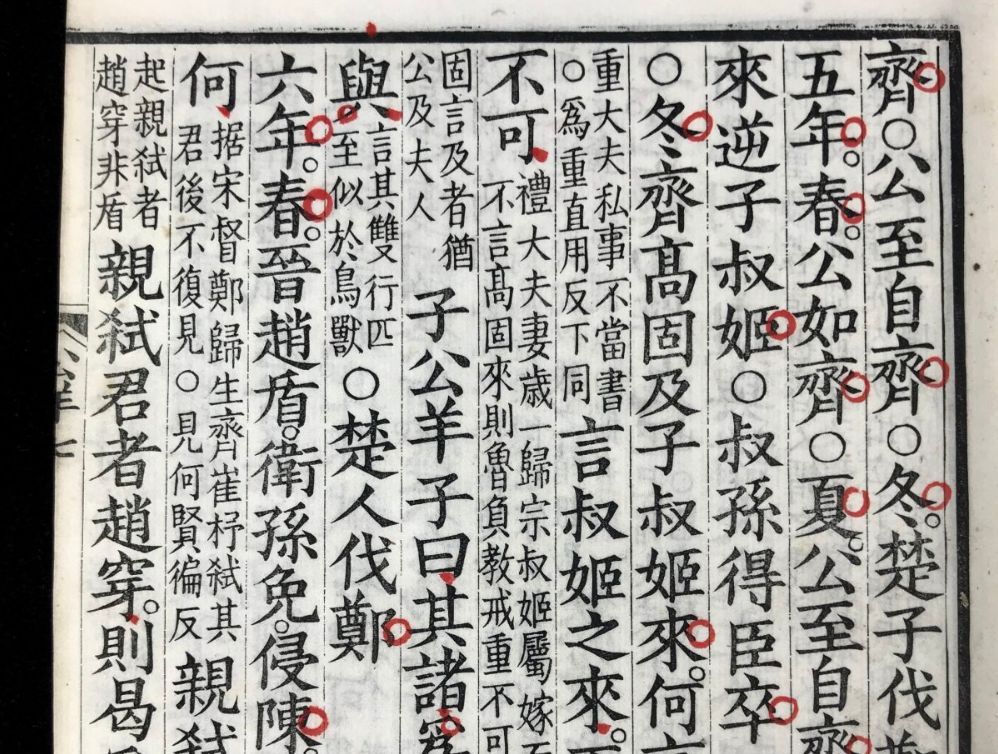 齊○公至自齊○冬。楚子伐
五年。春。公如齊○夏。公至自齊
來逆子叔姬○叔孫得臣卒
○冬齊髙固及子叔姬來。何
重大夫私事不當書
○爲重直用反下同
言叔姬之來。
不可
禮大夫妻歲一歸宗叔姬屬嫁
不言髙固來則魯負教戒重不可
固言及者猶
公及夫人
子公羊子曰其諸爲
與
言其雙行匹
至似於鳥獸
○楚人伐鄭
六年。春。晉趙盾。衛孫免。侵陳。
何
据宋督鄭歸生齊崔杼弑其
君後不復見○見何賢徧反
親弑
起親弑者
趙穿非盾
親弑君者趙穿。則曷